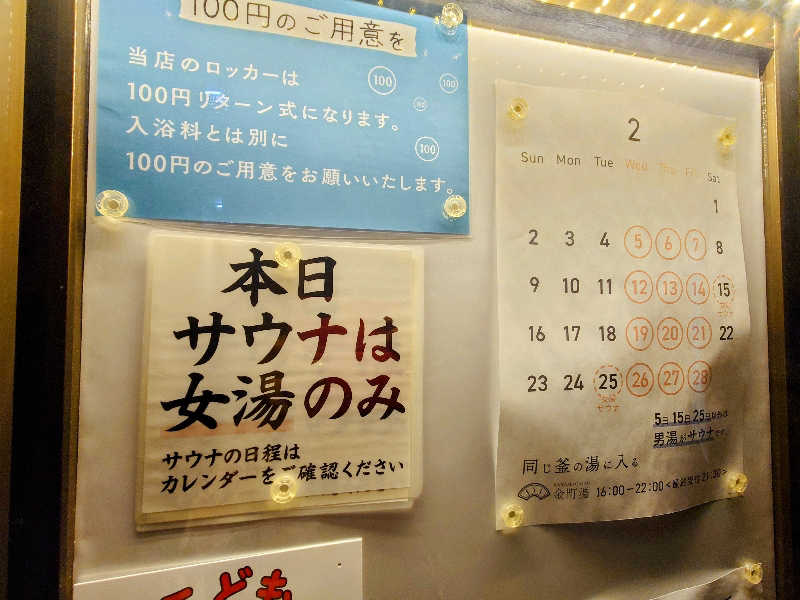 100円のご用意を
当店のロッカーは
100円リターン式になります。
入浴料とは別に
100円のご用意をお願いいたします。
100
100
100
100
本日
サウナは
女湯のみ
サウナの日程は
カレンダーをご確認ください
2
Sun Mon Tue Wed Thu Fri Sat
1
2 3 4 5 6 7 8
9 10 11 12 13 14 15
16 17 18 19 20 21 22
23 24 25 26 27 28
女湯
サウナ
5日 15日 25日以外は
男湯がサウナです。
同じ釜の湯に入る
金町湯 16:00-22:00<最終受付21:30>
こども